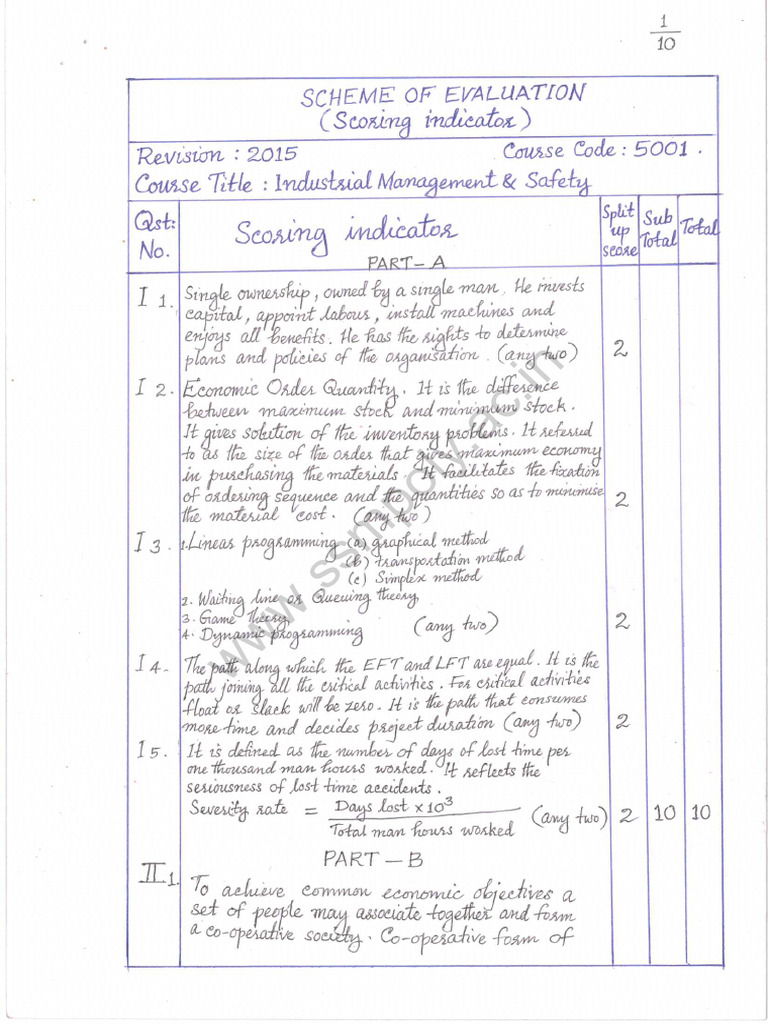 1
10
SCHEME OF EVALUATION
(Scoring indicator)
Revision : 2015 Course Code : 5001 .
Course Title : Industrial Management & Safety
Qst: No. Scoring indicator Split up score Sub Total Total
PART - A
I 1. Single ownership, owned by a single man. He invests
capital, appoint labour, install machines and
enjoys all benefits. He has the rights to determine
plans and policies of the organisation. (any two) 2
I 2. Economic Order Quantity. It is the difference
between maximum stock and minimum stock.
It gives solution of the inventory problems. It referred
to as the size of the order that gives maximum economy
in purchasing the materials. It facilitates the fixation
of ordering sequence and the quantities so as to minimise
the material cost. (any two) 2
I 3. 1. Linear programming (a) graphical method
(b) transportation method
(c) Simplex method
2. Waiting line or Queuing theory
3. Game Theory
4. Dynamic programming (any two) 2
I 4. The path along which the EFT and LFT are equal. It is the
path joining all the critical activities. For critical activities
float or slack will be zero. It is the path that consumes
more time and decides project duration (any two) 2
I 5. It is defined as the number of days of lost time per
one thousand man hours worked. It reflects the
seriousness of lost time accidents.
Severity rate = Days lost × 10³
Total man hours worked (any two) 2 10 10
PART - B
II 1. To achieve common economic objectives a
set of people may associate together and form
a co-operative society. Co-operative form of
www.ssmpoly.ac.in